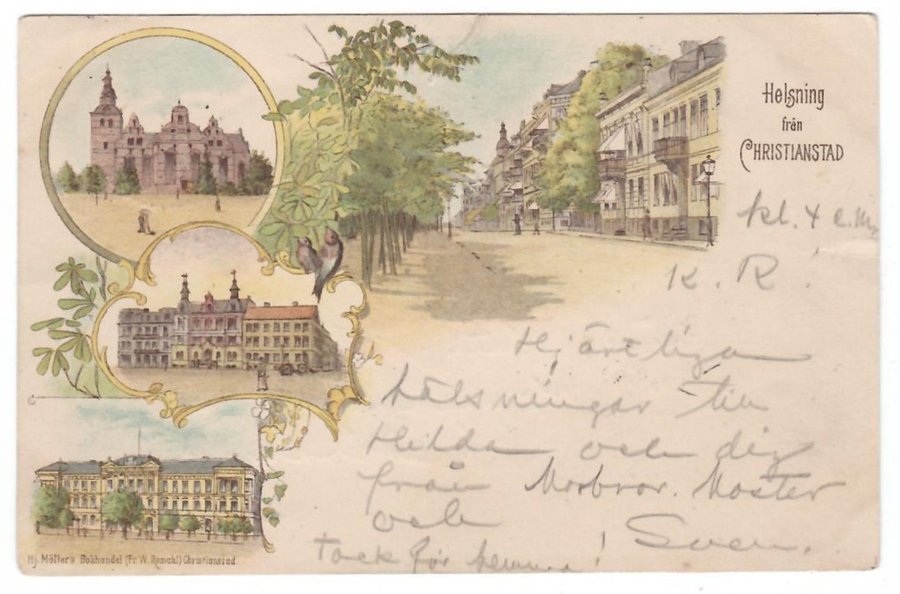 Helsning
från
CHRISTIANSTAD
kl. 4 e.m.
K. R!
Hjärtliga
hälsningar till
Hilda och dig
från Morbror. Moster
och Sven.
Tack för !
Hj. Möller's Bokhandel (Fr. W. Ramahl) Christianstad.